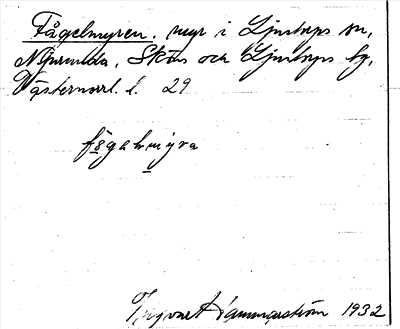 Fågelmyren, myr i Ljustorps sn,
Njurunda, Sköns och Ljustorps tg,
Västernorrl. l. 29
fögelmýra
Hammarström 1932